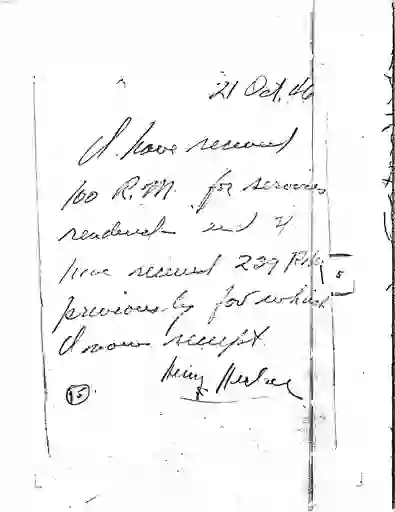 21 Oct. 46
I have received
100 R.M. for services
rendered and I
have received 239 R.M.
previously for which
I now receipt
5
15